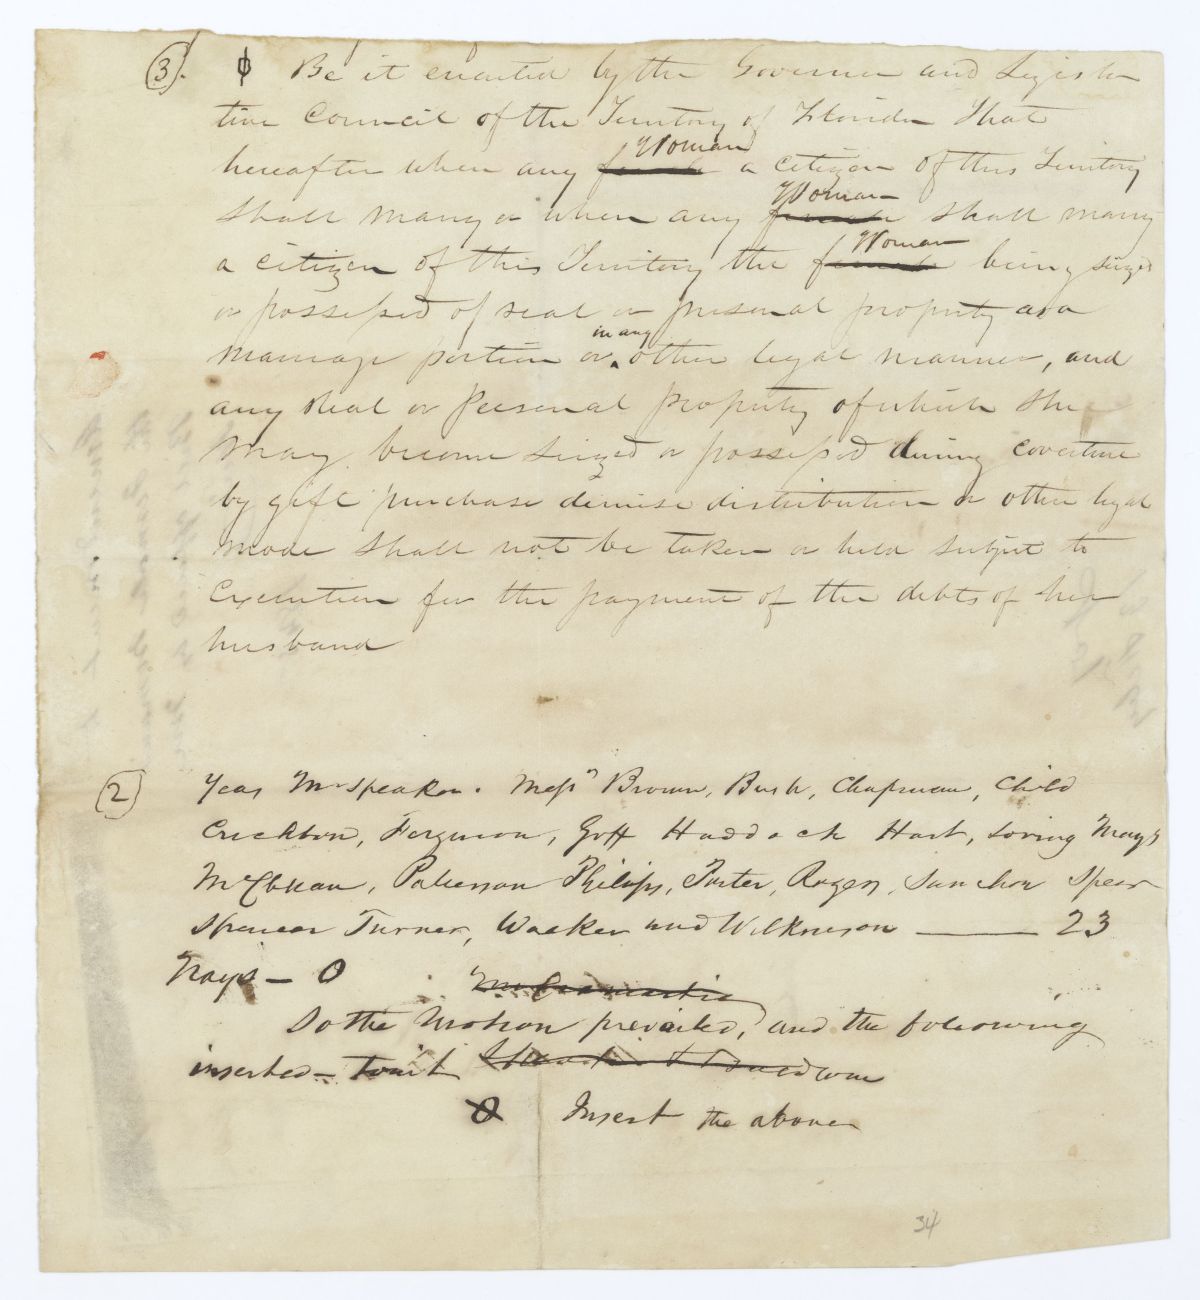 (3). ϕ Be it enacted by the Governor and Legisla
tive Council of the Territory of Florida That
hereafter when any female Woman a citizen of this Territory
Shall marry or when any female Woman shall marry
a citizen of this Territory the female Woman being seized
or possessed of real or personal property as a
marriage portion or in any other legal manner, and
any Real or Personal property of which she
May become seized or possessed during coverture
by gift purchase demise distribution or other legal
mode shall not be taken or held subject to
Execution for the payment of the debts of her
husband
(2) Yeas Mr Speaker. Messrs Brown, Bush, Chapman, Child
Crichton, Ferguson, Goff Haddock Hart, Loving Mays
McClellan, Patterson Philips, Porter, Rogers, Sanchez Spear
Spencer Turner, Walker and Wilkinson — 23
Nays — 0
So the Motion prevailed, and the following
inserted — towit
Insert the above
34